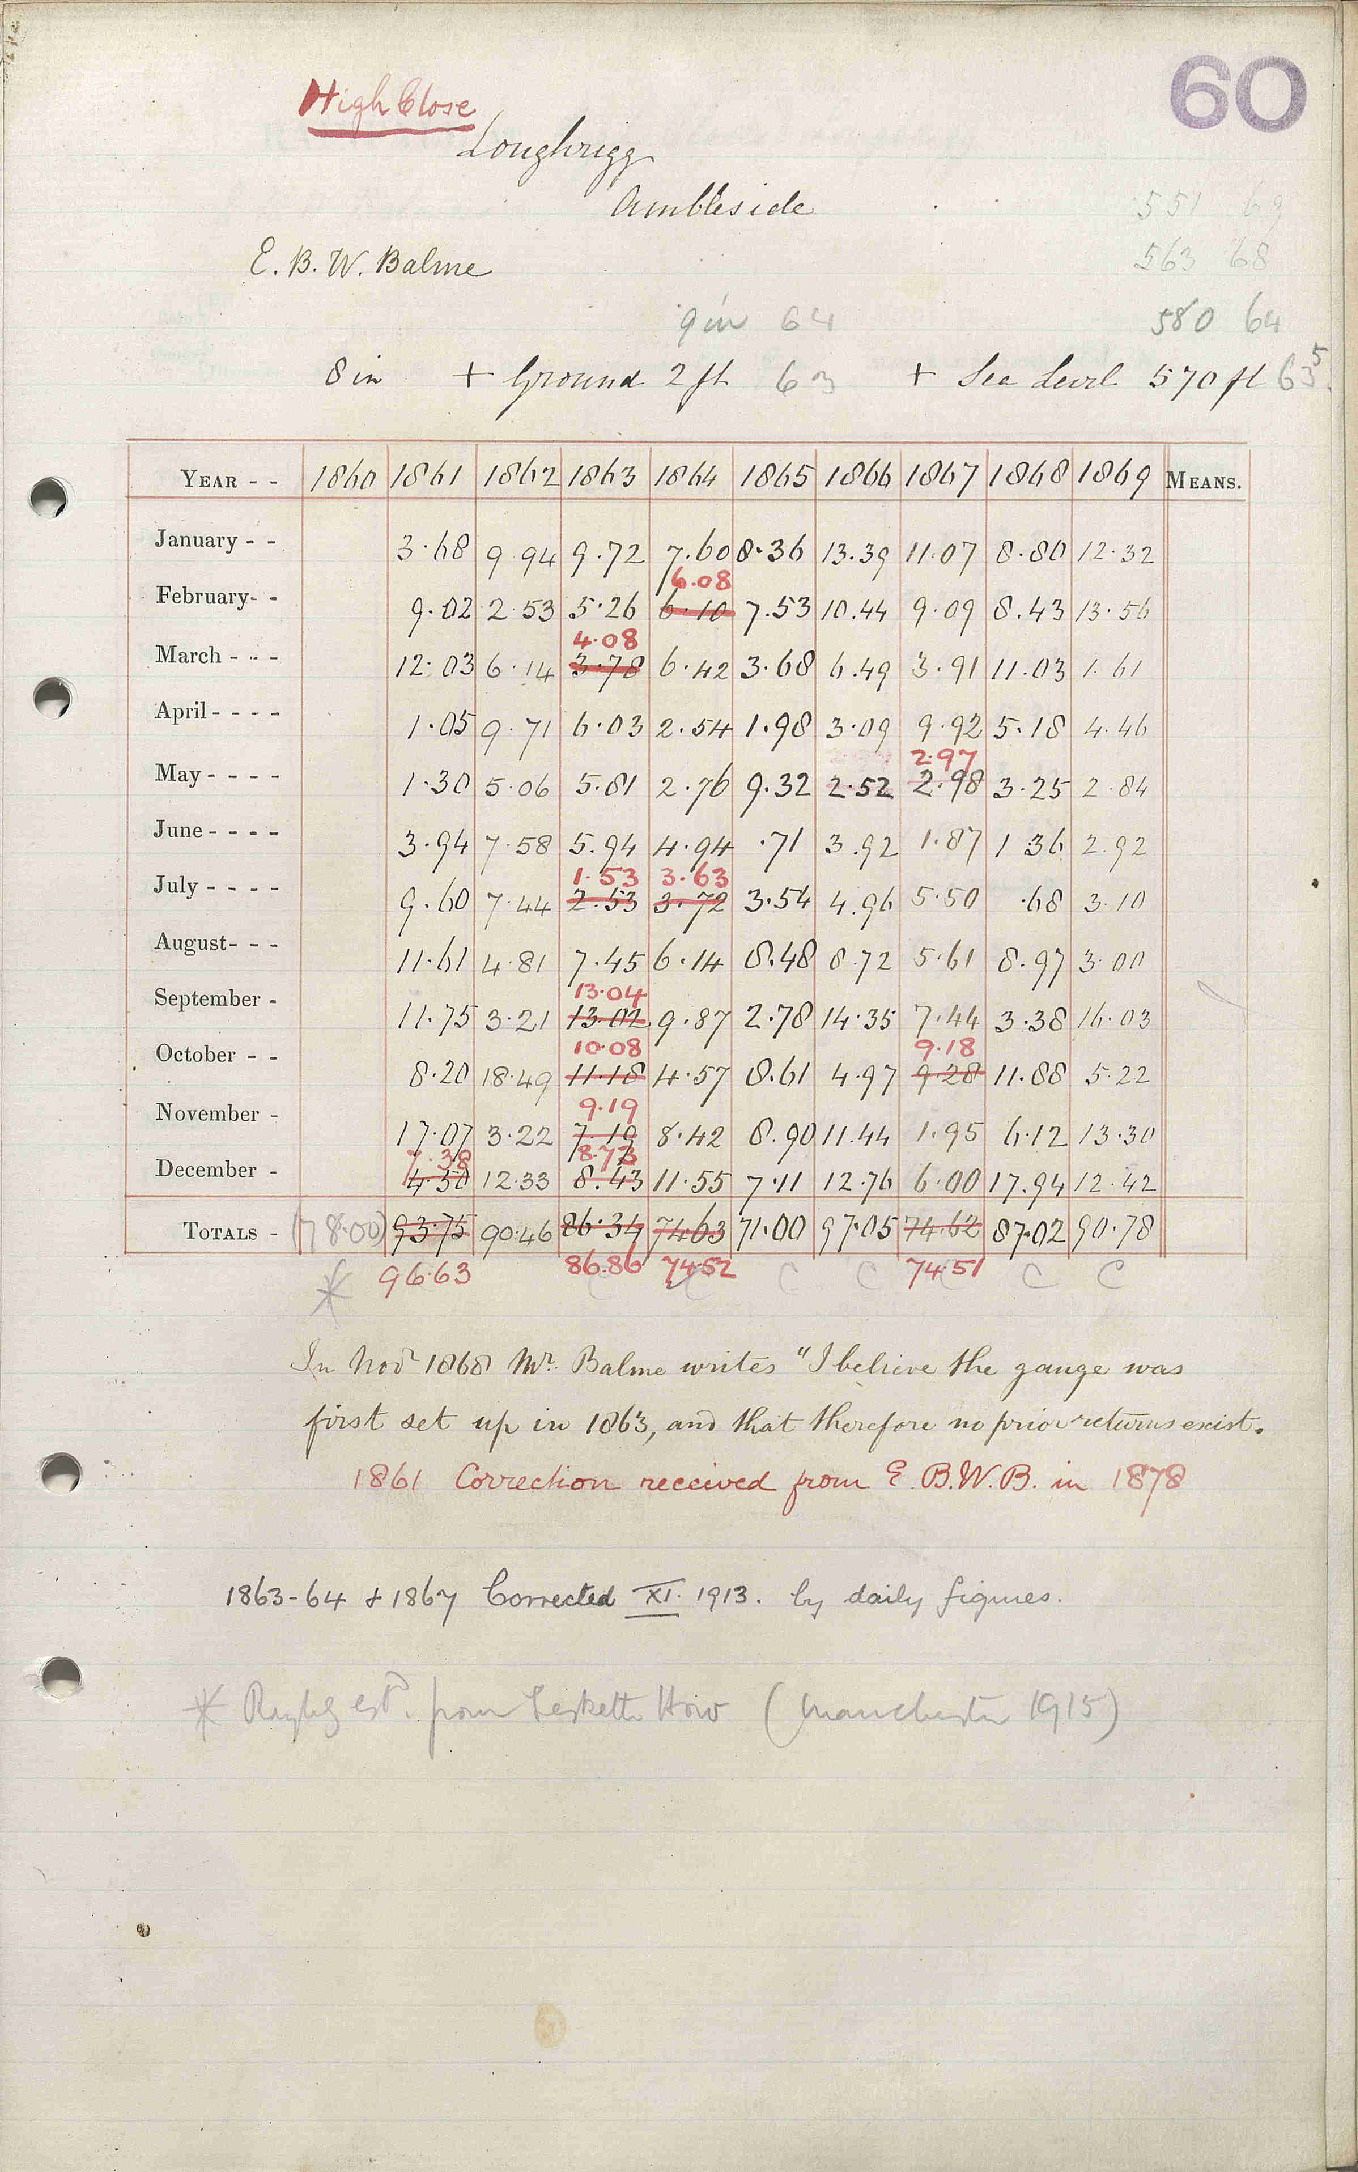 60
High Close
Loughrigg
Ambleside
551 69
E. B. W. Balme
563 68
9 in 64 580 64
8 in + Ground 2 ft 63 + Sea Level 570 ft 63 5
YEAR - - 1860 1861 1862 1863 1864 1865 1866 1867 1868 1869 MEANS.
January - - 3.68 9.94 9.72 7.60 8.36 13.39 11.07 8.80 12.32
6.08
February- - 9.02 2.53 5.26 6.10 7.53 10.44 9.09 8.43 13.56
4.08
March - - - 12.03 6.14 3.78 6.42 3.68 6.49 3.91 11.03 1.61
April- - - - 1.05 9.71 6.03 2.54 1.98 3.09 9.92 5.18 4.46
2.97
May- - - - 1.30 5.06 5.81 2.76 9.32 2.52 2.98 3.25 2.84
June- - - - 3.94 7.58 5.94 4.94 .71 3.92 1.87 1 36 2.92
1.53 3.63
July - - - - 9.60 7.44 2.53 3.72 3.54 4.96 5.50 .68 3.10
August- - - 11.61 4.81 7.45 6.14 8.48 8.72 5.61 8.97 3.00
13.04
September - 11.75 3.21 13.02 9.87 2.78 14.35 7.44 3.38 16.03
10.08 9.18
October - - 8.20 18.49 11.18 4.57 8.61 4.97 9.28 11.88 5.22
9.19
November - 17.07 3.22 7.19 8.42 8.90 11.44 1.95 6.12 13.30
7.38 8.73
December - 4.50 12.33 8.43 11.55 7.11 12.76 6.00 17.94 12.42
TOTALS - (78.00) 93.75 90.46 86.34 74.63 71.00 97.05 74.62 87.02 90.78
* 96.63 86.86 74.52 C C 74.51 C C
In Nov 1868 Mr. Balme writes "I believe the gauge was
first set up in 1863, and that therefore no prior returns exist.
1861 Correction received from E. B. W. B. in 1878
1863-64 + 1867 Corrected XI. 1913. by daily figures.
* Roughly estd. from Lesketh How (Manchester 1915)